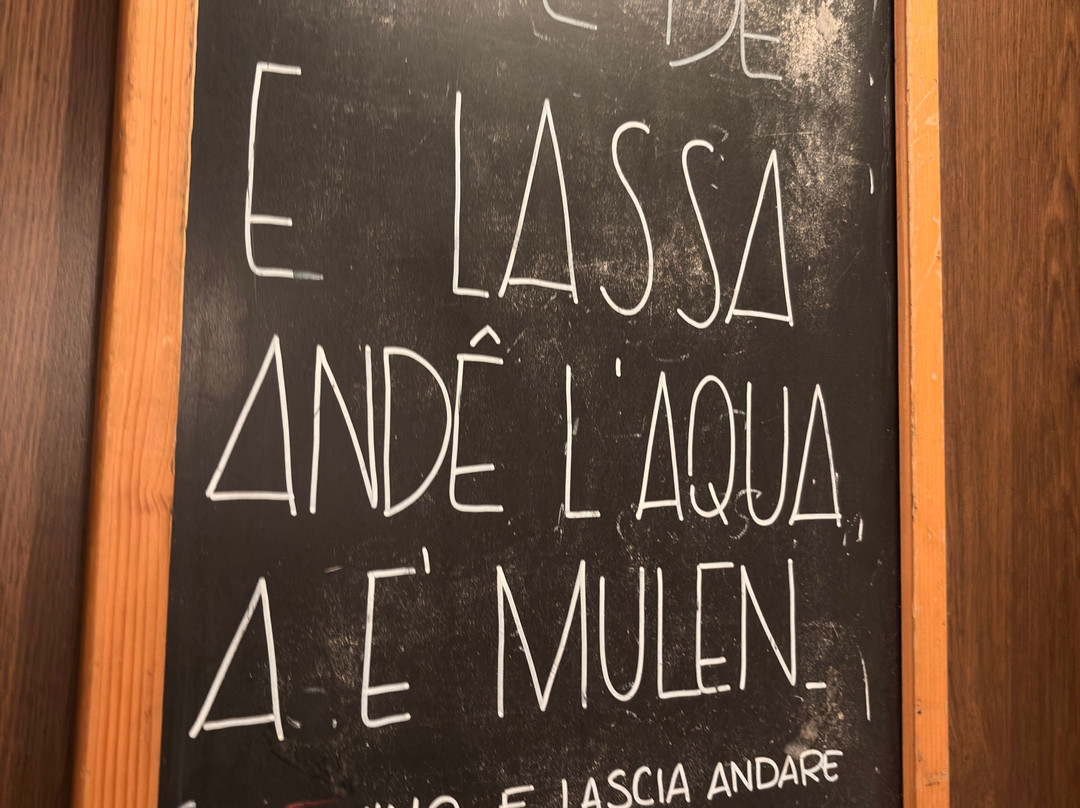 DE
E LASSA
ANDÊ L'AQUA
A E' MULEN
E LASCIA ANDARE